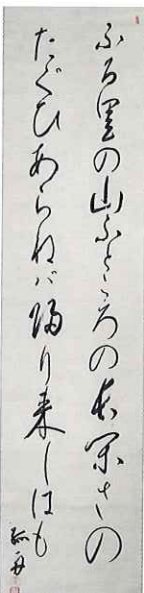 ふる里の山ふところの長閑さの
たぐひあらねば帰り来しはも